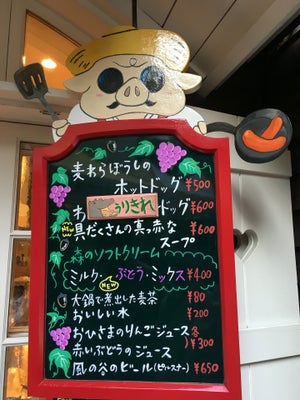 麦わらぼうしの
ホットドッグ ¥500
わ うりきれ ドッグ ¥600
NEW
具だくさんの真っ赤な
スープ ¥600
森のソフトクリーム
ミルク・ぶどう・ミックス ¥400
NEW
大鍋で煮出した麦茶 ¥80
おいしい水 ¥200
おひさまのりんごジュース 各
赤いぶどうのジュース ¥300
風の谷のビール(ピルスナー) ¥650